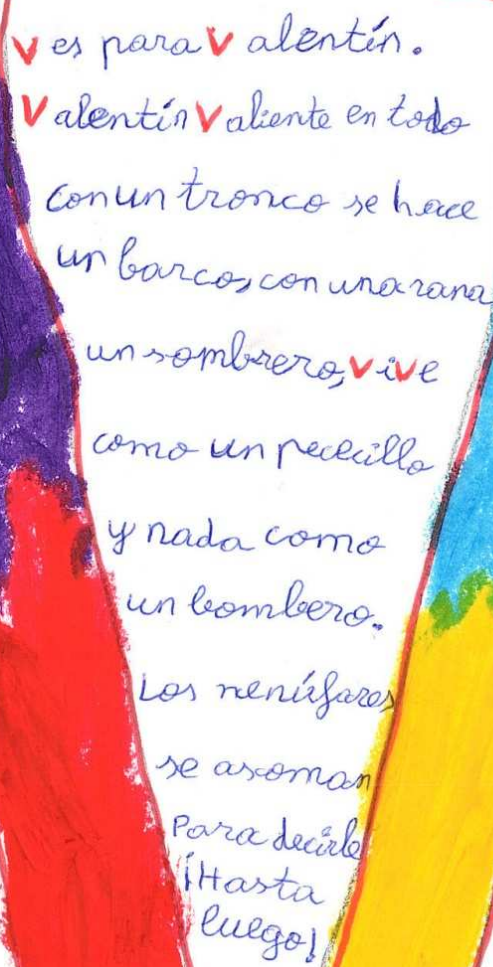 V es para Valentín.
Valentín Valiente en todo
con un tronco se hace
un barco, con una rana
un sombrero, vive
como un pececillo
y nada como
un bombero.
Los nenúfares
se asoman
Para decirle
¡Hasta
luego!